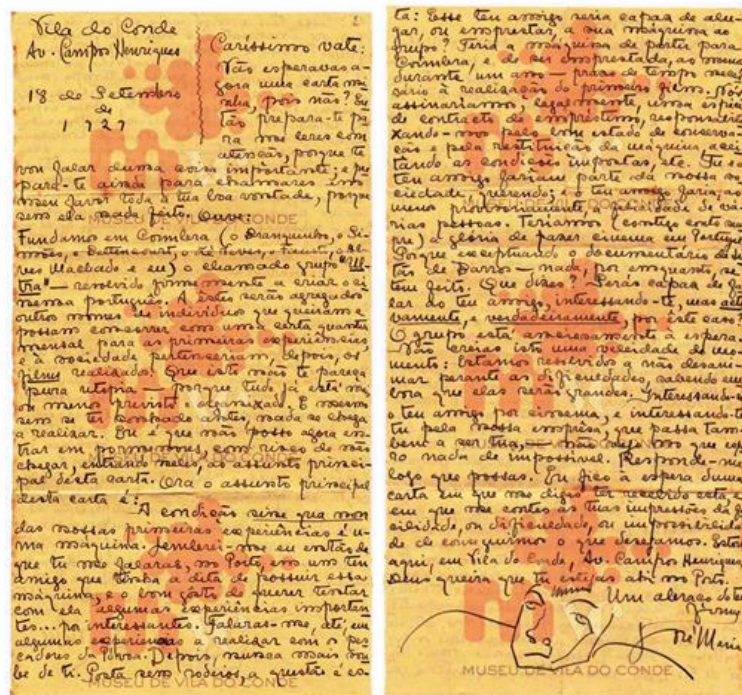 Vila do Conde
Av. Campos Henriques
18 de Setembro
de
1927
Caríssimo vate:
Não esperavas a-
gora uma carta mi-
nha, pois não? En-
tão prepara-te pa-
ra me leres com
atenção, porque te
vou falar duma coisa importante; e pre-
para-te ainda para chamares em
meu favor toda a tua boa vontade, porque
sem ela nada feito. Ouve:
Fundamos em Coimbra (o Branquinho, o Si-
mões, o Bettencourt, o Zé Neves, o Fausto, o Al-
ves Machado e eu) o chamado grupo "Ul-
tra" — resolvido firmemente a criar o ci-
nema português. A êstes serão agregados
outros nomes de indivíduos que queiram e
possam concorrer com uma certa quantia
mensal para as primeiras experiências,
e à sociedade pertenceriam, depois, os
films realizados. Que isto não te pareça
pura utopia — porque tudo já está mais
ou menos previsto e organizado. E mesmo
sem se ter sonhado antes, nada se chega
a realizar. Eu é que não posso agora en-
trar em pormenores, com risco de não
chegar, entrando neles, ao assunto princi-
pal desta carta. Ora o assunto principal
desta carta é:
A condição sine qua non
das nossas primeiras experiências é u-
ma máquina. Lembrei-me eu então de
que tu me falaras, no Porto, em um teu
amigo que tinha a dita de possuir essa
máquina, e o bom gôsto de querer tentar
com ela algumas experiências importan-
tes... por interessantes. Falaras-me, até, em
algumas experiências a realizar com os pes-
cadores da Póvoa. Depois, nunca mais sou-
be de ti. Posta sem rodeios, a questão é es-
ta: Esse teu amigo seria capaz de alu-
gar, ou emprestar, a sua máquina ao
grupo? Teria a máquina de partir para
Coimbra, e de ser emprestada, ao menos
durante um ano — prazo de tempo neces-
sário à realização do primeiro film. Nós
assinaríamos, legalmente, uma espécie
de contracto de empréstimo, responsabili-
zando-nos pelo bom estado de conserva-
ção e pela restituição da máquina, acei-
tando as condições impostas, etc. Tu e o
teu amigo fariam parte da nossa so-
ciedade, querendo; e o teu amigo faria, ao
menos provisoriamente, a felicidade de vá-
rias pessoas. Teríamos (contigo conto sem-
pre) a glória de fazer cinema em Portugal.
Porque exceptuando o documentário de Lei-
tão de Barros — nada, por enquanto, se
tem feito. Que dizes? Serás capaz de fa-
lar ao teu amigo, interessando-te, mas acti-
vamente, e verdadeiramente, por êste caso?
O grupo está ansiosamente à espera.
Não creias isto uma veleidade de mo-
mento: Estamos resolvidos a não desani-
mar perante as dificuldades, sabendo em-
bora que elas serão grandes. Interessando-se
o teu amigo por cinema, e interessando-te
tu pela nossa emprêsa, que passa tam-
bem a ser tua, — não vejo no que espe-
ro nada de impossível. Responde-me
logo que possas. Eu fico à espera duma
carta em que me digas ter recebido esta, e
em que me contes as tuas impressões da fa-
cilidade, ou dificuldade, ou impossibilida-
de de conseguirmos o que desejamos. Estou
aqui, em Vila do Conde, Av. Campos Henriques.
Deus queira que tu estejas ahi no Porto.
Um abraço do teu
José Maria
MUSEU DE VILA DO CONDE
MUSEU DE VILA DO CONDE
MUSEU DE VILA DO CONDE
MUSEU DE VILA DO CONDE
MUSEU DE VILA DO CONDE
MUSEU DE VILA DO CONDE